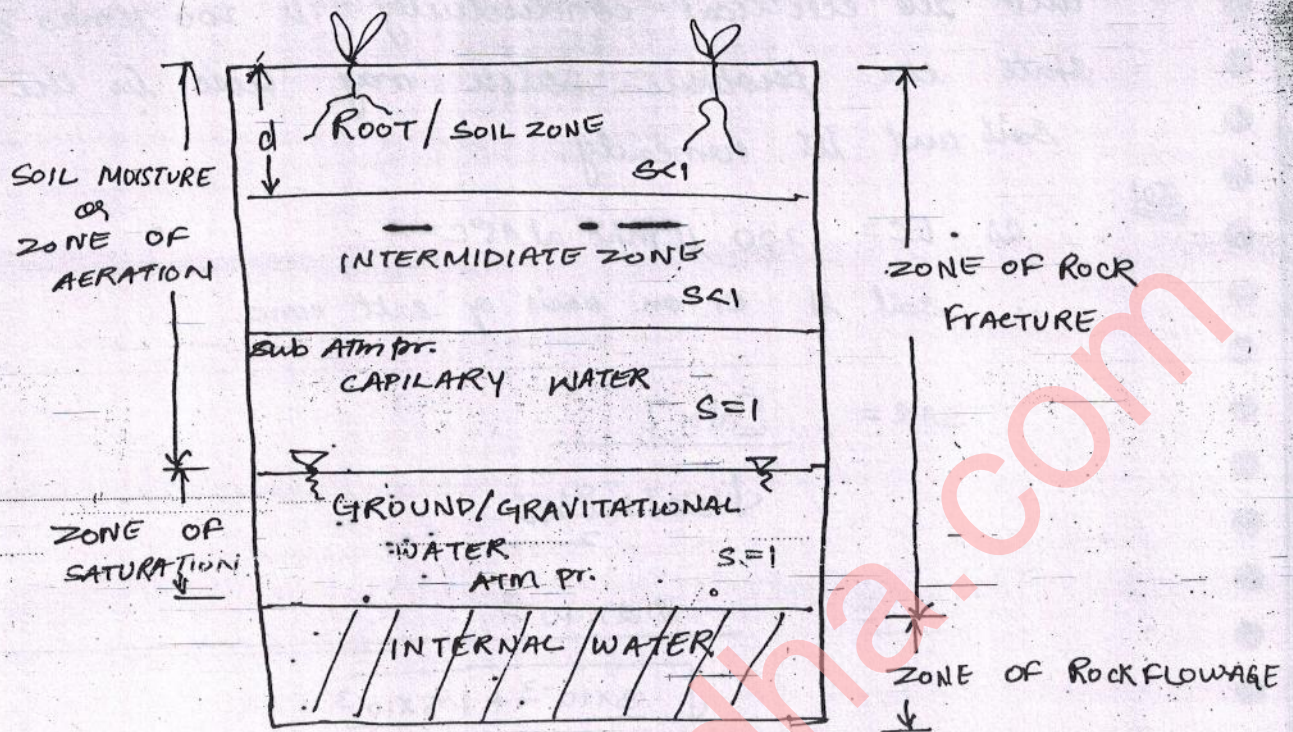 d
ROOT / SOIL ZONE
S<1
SOIL MOISTURE
or
ZONE OF
AERATION
INTERMIDIATE ZONE
S<1
ZONE OF ROCK
FRACTURE
SUB ATM pr.
CAPILARY WATER
S=1
GROUND/GRAVITATIONAL
WATER
S=1
ATM Pr.
ZONE OF
SATURATION
INTERNAL WATER
ZONE OF ROCKFLOWAGE
dha.com